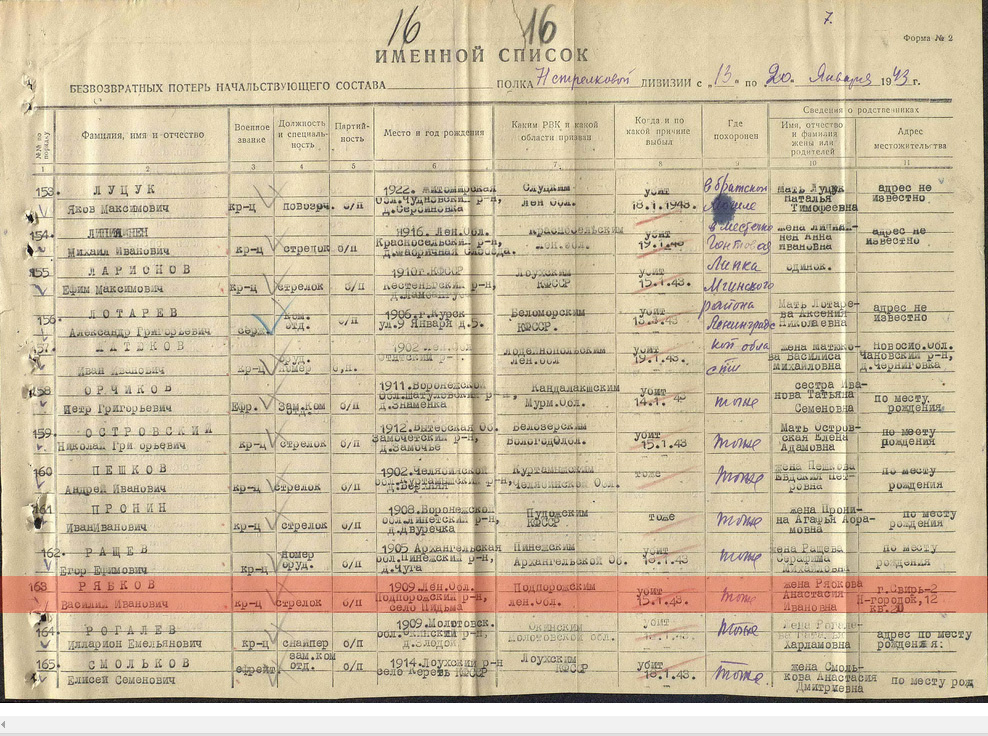 16 16 7.
Форма № 2
ИМЕННОЙ СПИСОК
БЕЗВОЗВРАТНЫХ ПОТЕРЬ НАЧАЛЬСТВУЮЩЕГО СОСТАВА ПОЛКА стрелковой ДИВИЗИИ с „13" по 20 Января 1943 г.
№№ по порядку
Фамилия, имя и отчество
Военное звание
Должность и специальность
Партийность
Место и год рождения
Каким РВК и какой области призван
Когда и по какой причине выбыл
Где похоронен
Сведения о родственниках
Имя, отчество и фамилия жены или родителей
Адрес местожительства
1 2 3 4 5 6 7 8 9 10 11
153. ЛУЦУК 1922. Житомирская Слуцким убит в братской мать Луцук адрес не
Яков Максимович кр-ц повозч. б/п обл. Чудновский р-н, Лен обл. 18.1.1943. могиле Наталья Тимофеевна известно
154. 1916. Лен.Обл. Красносельским убит в местечке жена адрес не
Михаил Иванович кр-ц стрелок б/п Красносельский р-н, Лен.обл. 19.1.43 Анна Ивановна известно
д.Фабричная Слобода.
155 ЛАРИОНОВ 1910г.КФССР Лоухским убит Липка одинок.
Ефим Максимович кр-ц стрелок б/п Кестеньгский р-н, КФССР 15.1.43. Мгинского
156. ЛОТАРЕВ ком. 1906.г.Курск Беломорским убит района Мать Лотарева Аксения адрес не
Александр Григорьевич серж. отд. б/п ул.9 Января д.5. КФССР. Ленинградс Николаевна известно
157. МАТЮКОВ оруд. 1902 Лен.обл Лодейнопольским убит кой обла жена Матюкова Василиса Новосиб.обл.
Иван Иванович кр-ц номер б,п. р- Лен.обл 19.1.43. сти Михайловна Чановский р-н, д.Черниговка
158 ОРЧИКОВ 1911.Воронежской Кандалакшским убит сестра Иванова Татьяна по месту
Петр Григорьевич Ефр. Зам.Ком б/п д.Знаменка Мурм.Обл. 14.1. 43 тоже Семеновна рождения
159. ОСТРОВСКИЙ 1912.Витебская об. Белозерским убит Мать Островская Елена по месту
Николай Григорьевич кр-ц стрелок б/п д.Замочье Вологод.обл. 15.1.43 тоже Адамовна рождения
160 ПЕШКОВ 1902.Челябинской Куртамышским тоже жена Пешкова по месту
Андрей Иванович кр-ц стрелок б/п обл.Куртамышский р-н, Челябинской Обл. тоже Евдокия Петровна рождения
161 ПРОНИН 1908.Воронежской Пудожским тоже жена Пронина Агарья по месту
ИванИванович кр-ц стрелок б/п обл.Липетский р-н, д.Двуречка КФССР тоже рождения
162. РАЩЕВ номер 1905 Архангельская Пинежским убит жена Ращева по месту
Егор Ефимович кр-ц оруд. б/п обл.Пинежский р-н, д.Чуга Архангельской Об. 18.1.43. тоже Михайловна рождения
163 РЯБКОВ 1909.Лен.Обл. Подпорожским убит жена Рябкова г.Свирь-2
Василий Иванович кр-ц стрелок б/п Подпорожский р-н, село Пидьма Лен.обл. 15.1.43. тоже Анастасия Ивановна П-городок,12 кв.20
164. РОГАЛЕВ 1909.Молотовск. убит тоже жена
Илларион Емельянович кр-ц снайпер б/п обл. р-н, Молотовской обл 18.1.43. Харламовна адрес по месту рождения:
165. СМОЛЬКОВ зам.ком 1914.Лоухский р-н Лоухским убит жена Смолькова Анастасия
Елисей Семенович ефрейт. отд. б/п село КФССР КФССР 18.1.43. тоже Дмитриевна по месту рож